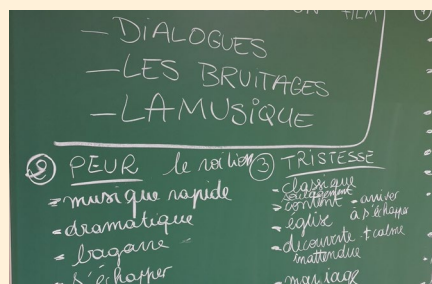 UN FILM
- DIALOGUES
- LES BRUITAGES
- LA MUSIQUE
② PEUR le roi lion
- musique rapide
- dramatique
- bagarre
- s'échapper
③ TRISTESSE
- classique
soulagement
- content - arriver
à s'échapper
- église
- découverte + calme
inattendue
- mariage